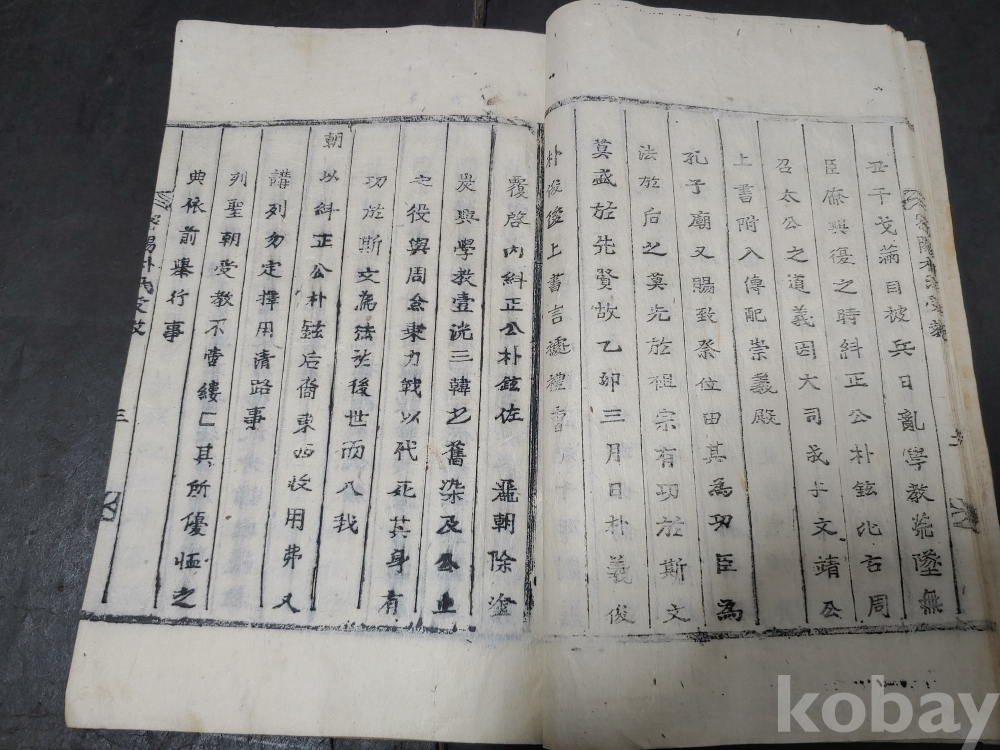 丑干戈滿目被兵日亂學教荒墜無
臣療興復之時糾正公朴鉉比古周
召太公之道義因大司成步文靖公
上書附入傳配崇義殿
孔子廟又賜致祭位田其為功臣為
法於后之莫先於祖宗有功於斯文
莫盛於先賢故乙卯三月日朴義俊
朴俊上書言據禮曹
覆啓內糾正公朴鉉佐 麗朝除塗
炭興學教壹洗三韓之舊染及公山
之役與周倉東力戰以代死其身有
功於斯文為法於後世而八我
朝以糾正公朴鉉后裔東西收用弗又
講列勿定擇用清路事
列聖朝受教不啻縷亡其所優恤之
典依前舉行事
三
kobay